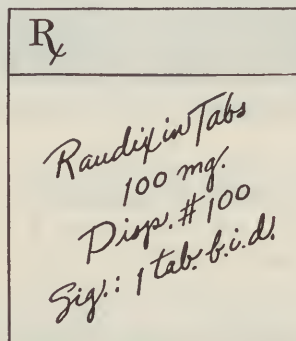 Rx
Raudixin Tabs
100 mg.
Disp. #100
Sig.: 1 tab. b.i.d.